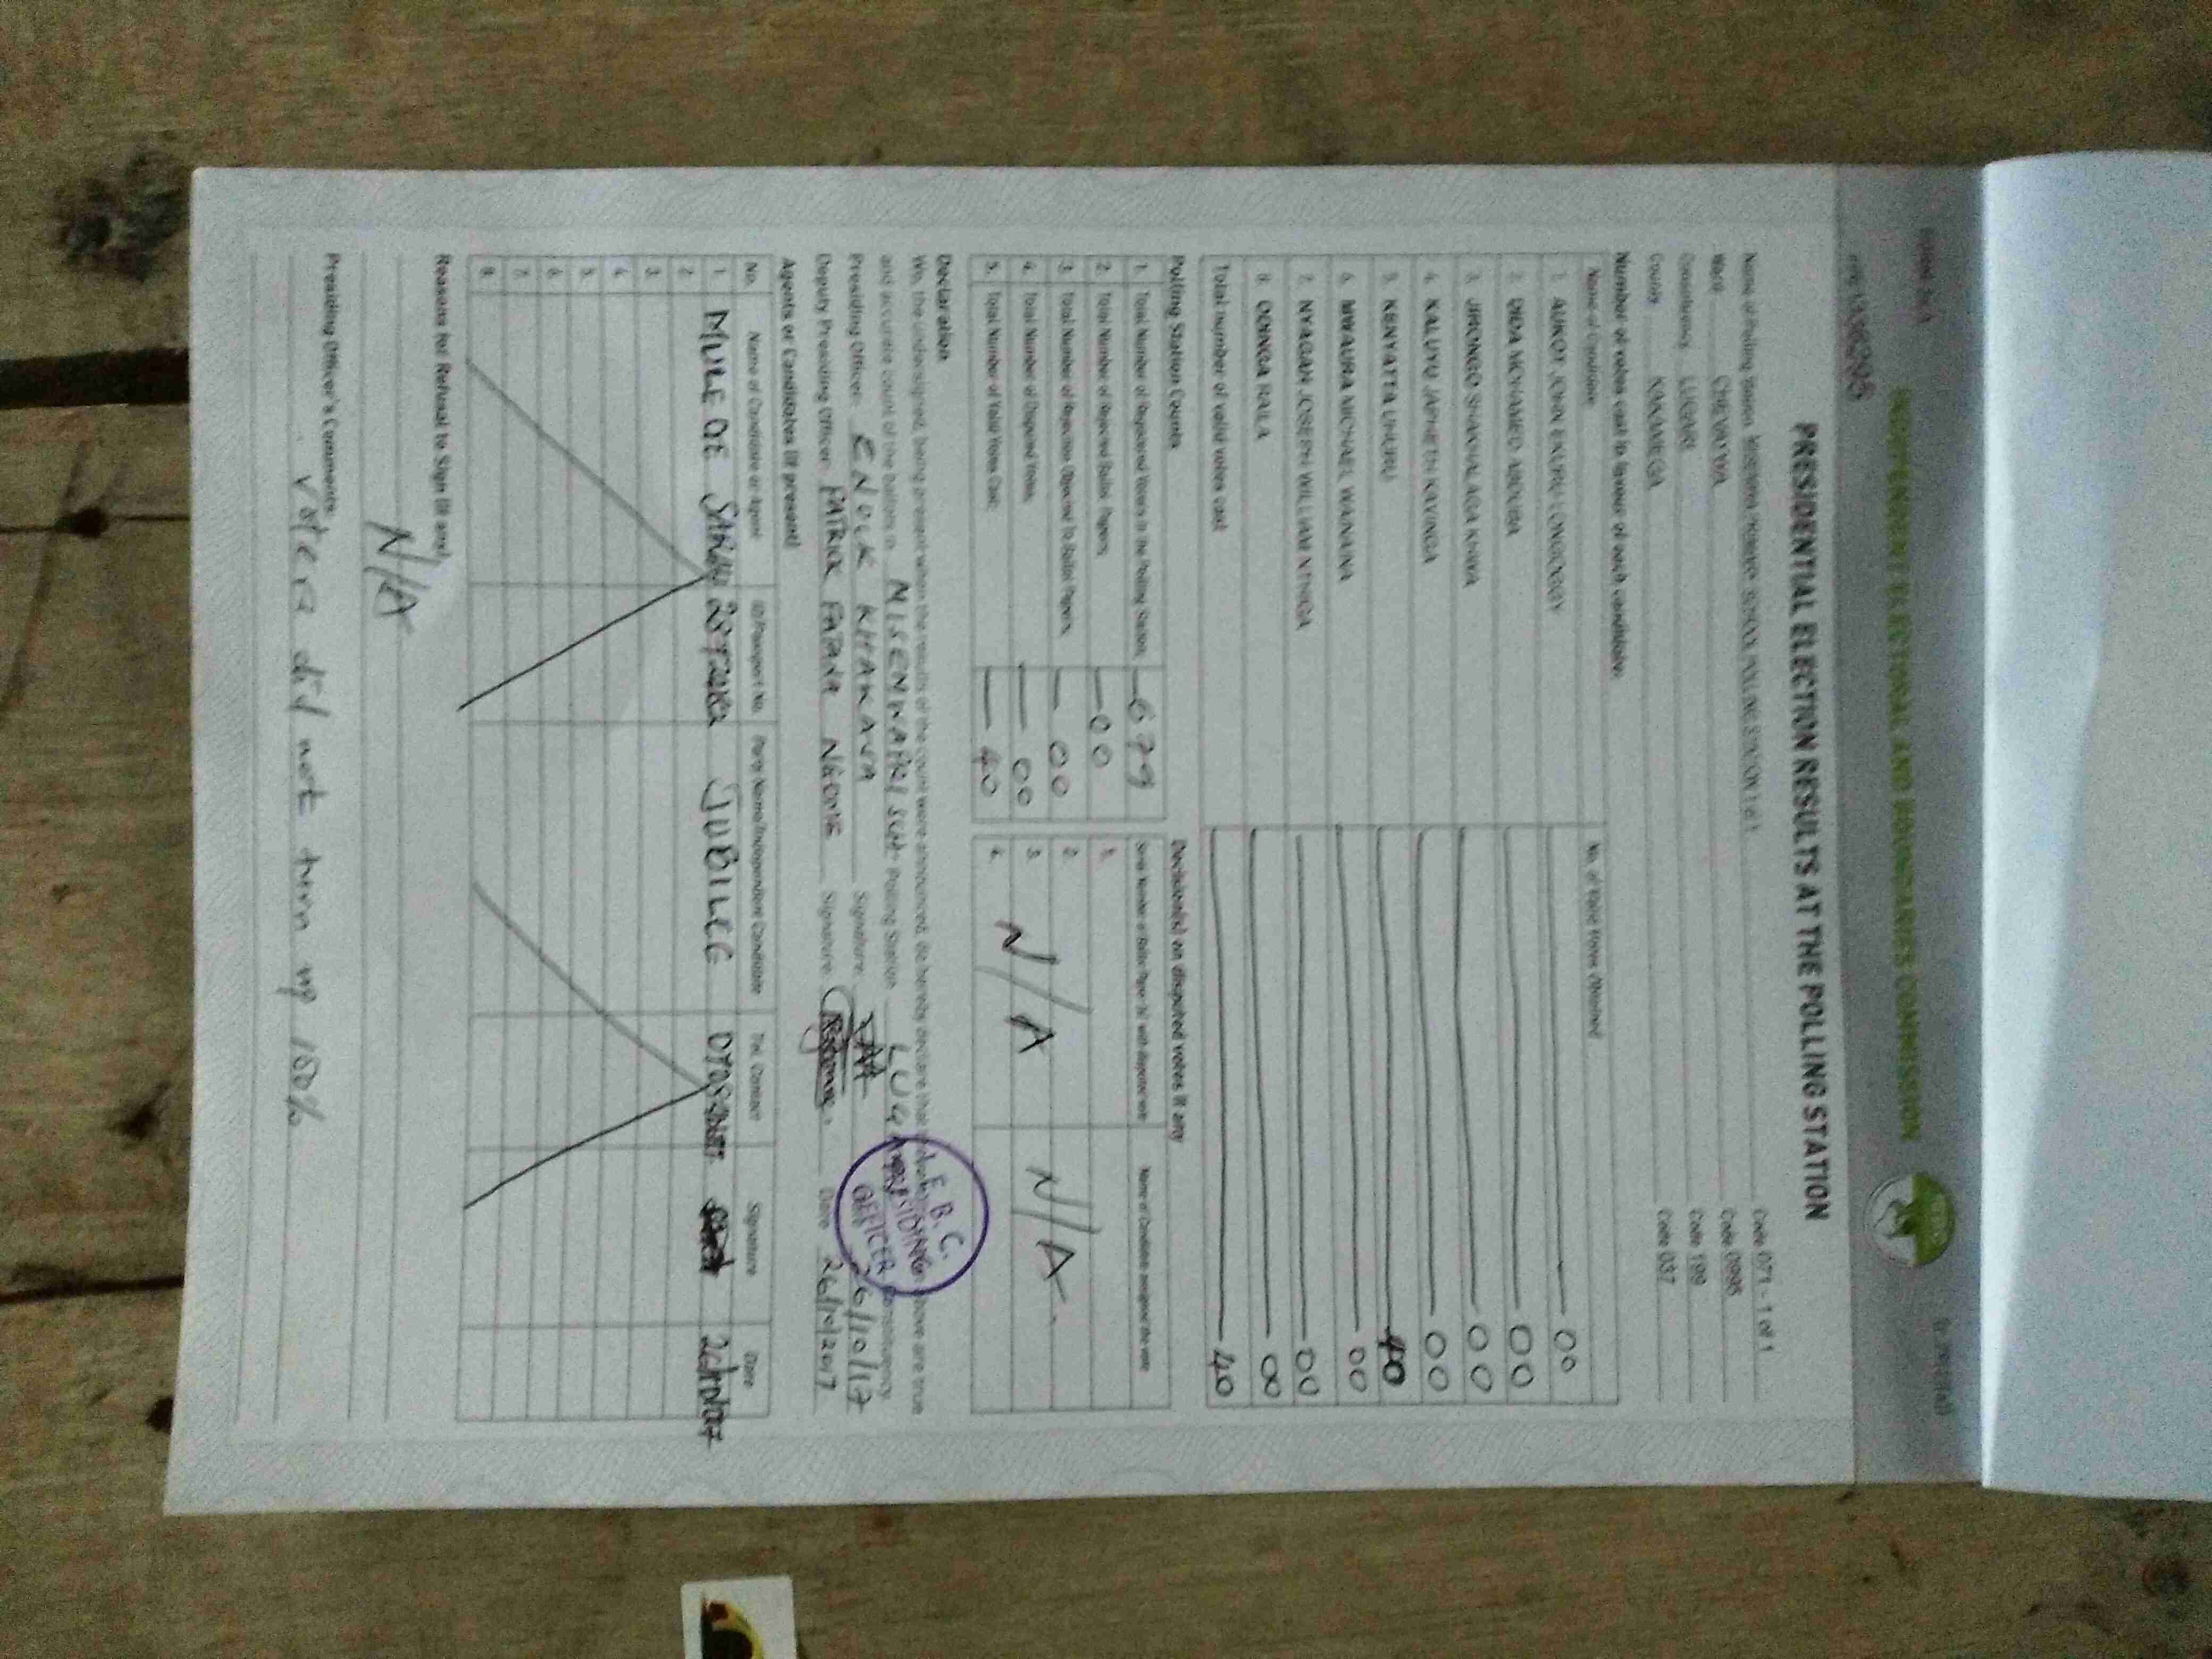 INDEPENDENT ELECTORAL AND BOUNDARIES COMMISSION
PRESIDENTIAL ELECTION RESULTS AT THE POLLING STATION
Name of Polling Station PRIMARY SCHOOL POLLING STATION 1 of 1 Code 071 - 1 of 1
Ward CHEVAYWA Code 0996
Constituency LUGARI Code 199
County KAKAMEGA Code 037
Number of votes cast in favour of each candidate:
Name of Candidate No. of Valid Votes Obtained
1. AUKOT JOHN EKURU LONGOGGY 00
2. DIDA MOHAMED ABDUBA 00
3. JIRONGO SHAKHALAGA KHWA 00
4. KALUYU JAPHETH KAVINGA 00
5. KENYATTA UHURU 40
6. MWAURA MICHAEL WAINAINA 00
7. NYAGAH JOSEPH WILLIAM NTHIGA 00
8. ODINGA RAILA 00
Total number of valid votes cast 40
Polling Station Counts
1. Total Number of Registered Voters in the Polling Station 679
2. Total Number of Rejected Ballot Papers 00
3. Total Number of Rejection Objected To Ballot Papers 00
4. Total Number of Disputed Votes 00
5. Total Number of Valid Votes Cast 40
Decision(s) on disputed votes if any
Serial Number of Ballot Paper (s) with disputed vote Name of Candidate assigned the vote
1.
2.
3.
4.
N/A N/A
Declaration
We, the undersigned, being present when the results of the count were announced, do hereby declare that the above are true
and accurate count of the ballots in MISENWA PRI SCH Polling Station Constituency
Presiding Officer ENOCK KHAKAVA Signature 26/10/17
Deputy Presiding Officer PATRICK Signature Date 26/10/2017
I.E.B.C.
PRESIDING
OFFICER
Agents or Candidates (if present)
No. Name of Candidate or Agent ID/Passport No. Party Name/Independent Candidate Tel. Contact Signature Date
1. JUBILEE
2.
3.
4.
5.
6.
7.
8.
Reasons for Refusal to Sign (if any)
N/A
Presiding Officer's Comments:
voters did not turn up 100%